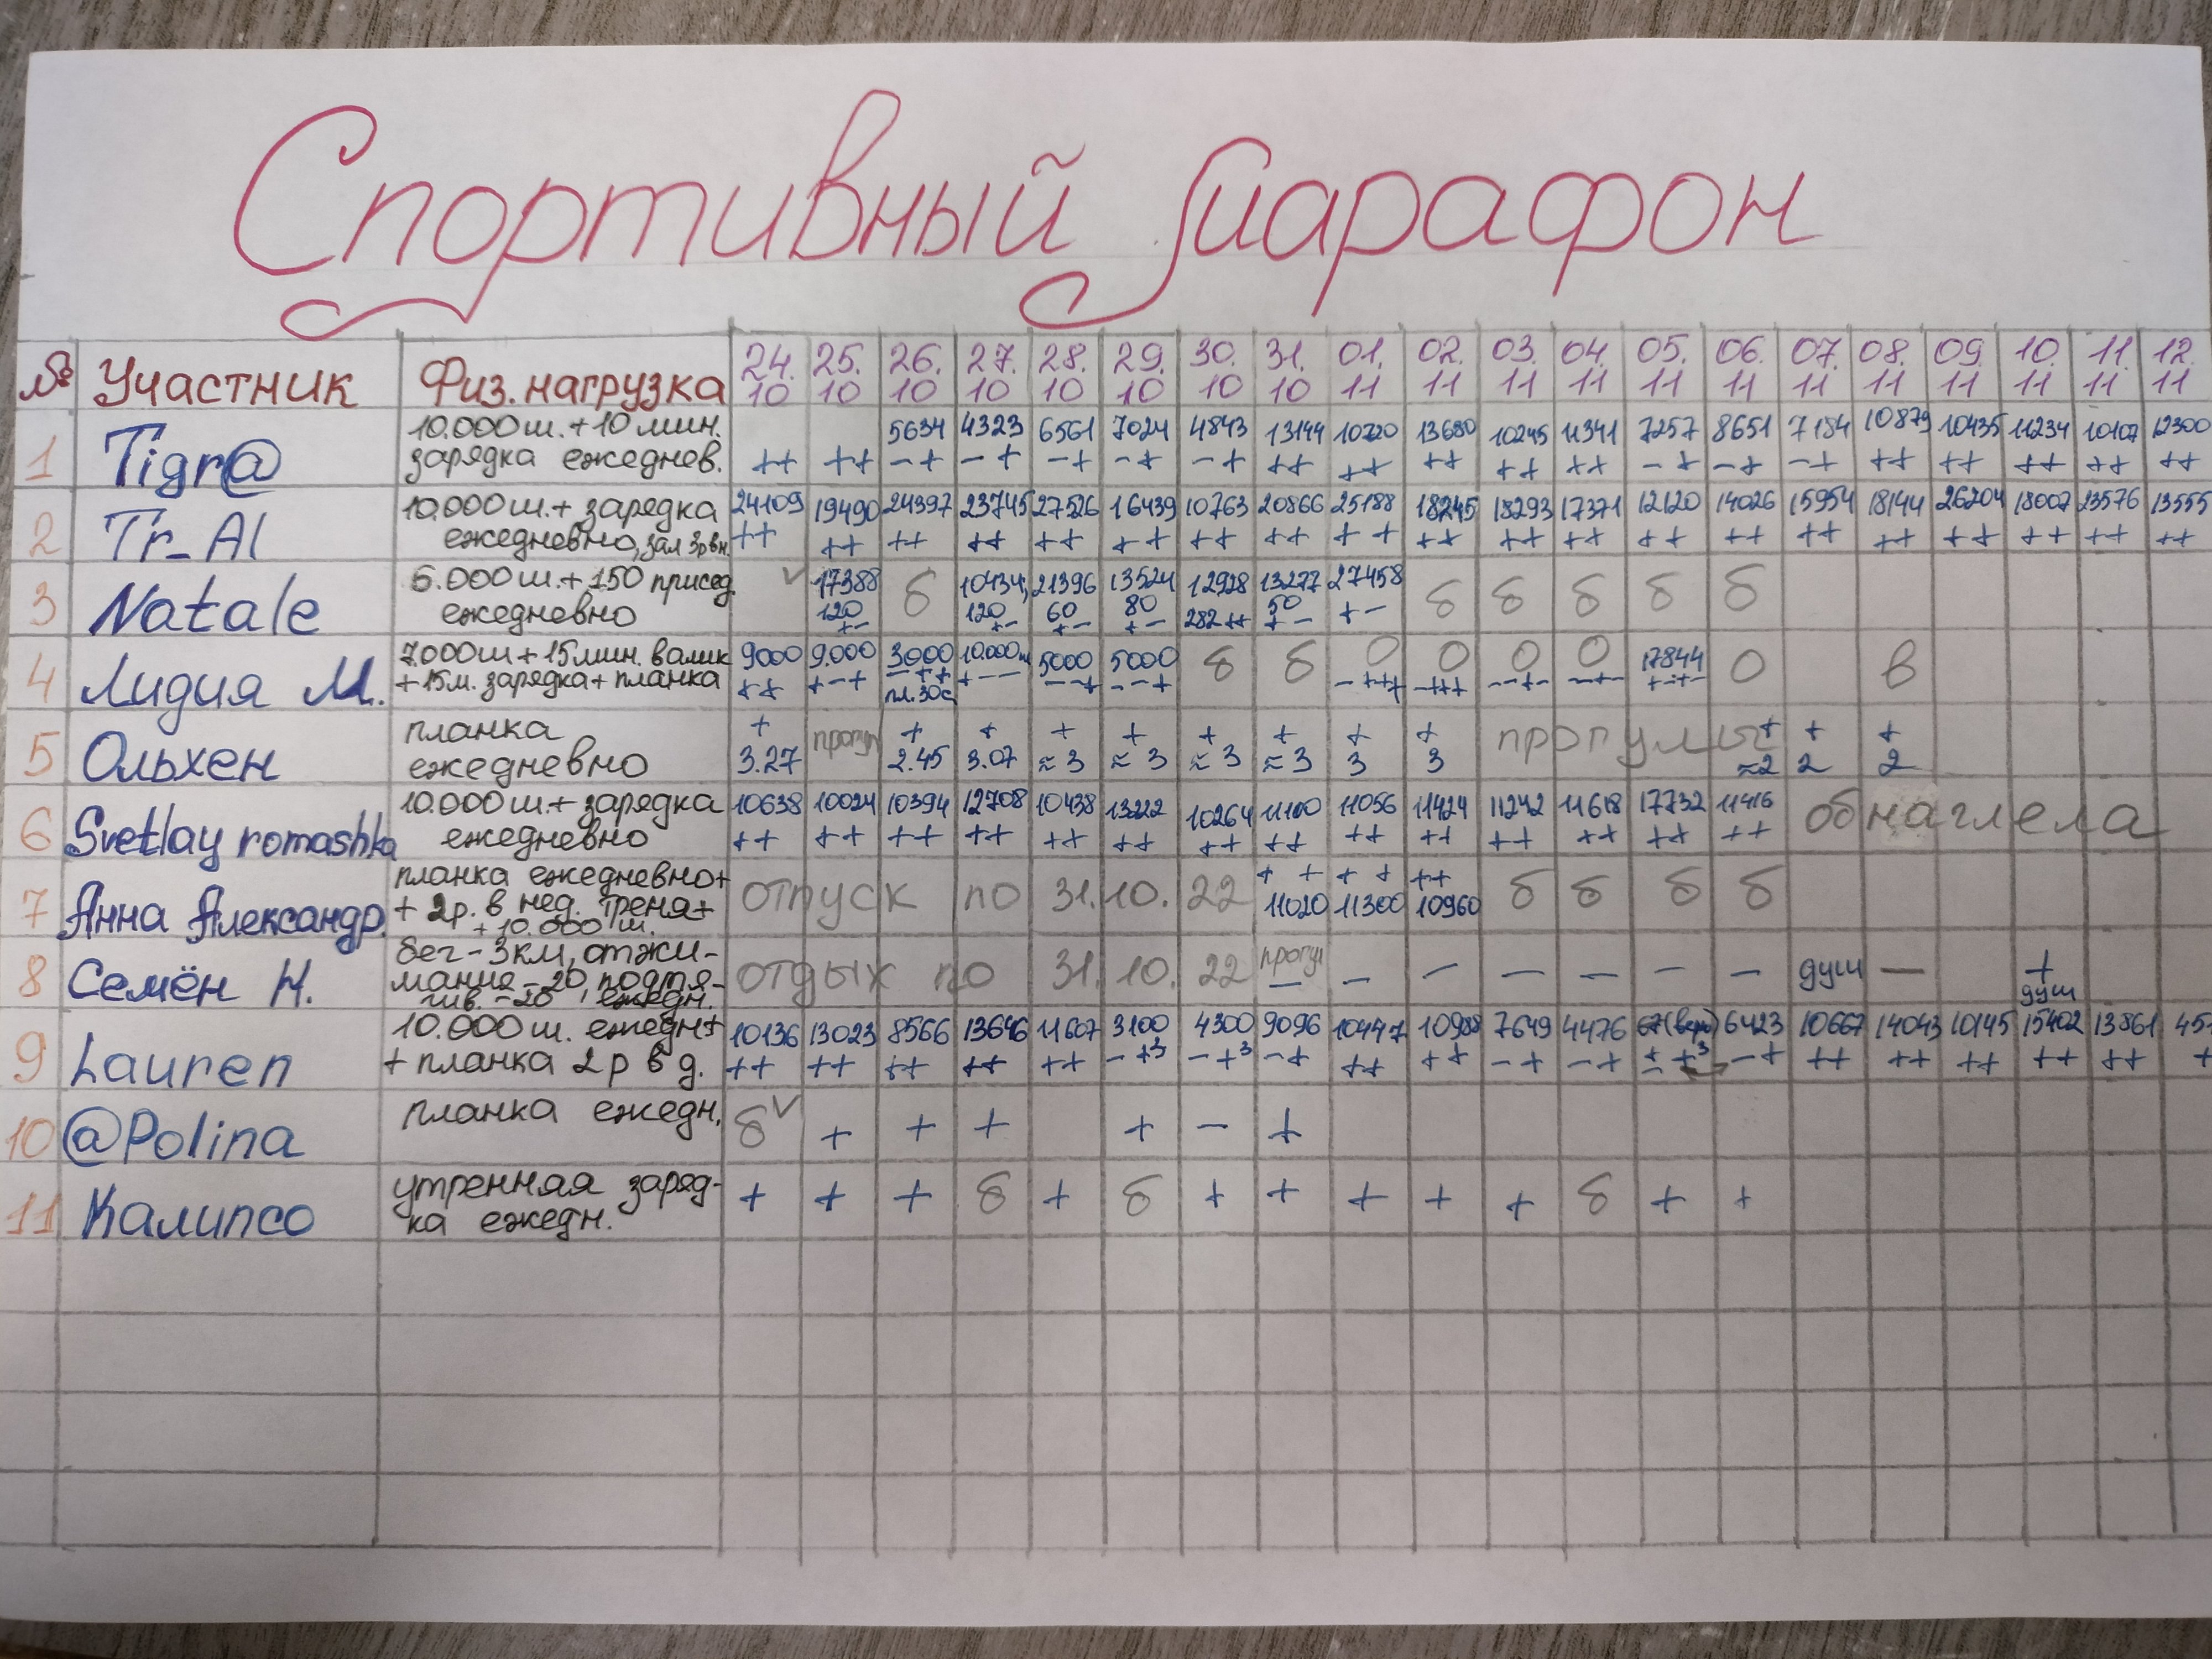 Спортивный марафон
№ Участник Физ. нагрузка 24.10 25.10 26.10 27.10 28.10 29.10 30.10 31.10 01.11 02.11 03.11 04.11 05.11 06.11 07.11 08.11 09.11 10.11 11.11 12.11
1 Tigr@ 10.000 ш. + 10 мин.
зарядка ежеднев.
5634 4323 6561 7024 4843 13144 10720 13680 10245 11341 7257 8651 7184 10879 10435 11234 10107 12300
++ ++ -+ -+ -+ -+ -+ ++ ++ ++ ++ ++ -+ -+ -+ ++ ++ ++ ++ ++
2 Tr_Al 10.000 ш. + зарядка
ежедневно, зал 3р в н.
24109 19490 24397 23745 27526 16439 10763 20866 25188 18245 18293 17371 12120 14026 15954 18144 26204 18007 23576 13555
++ ++ ++ ++ ++ ++ ++ ++ ++ ++ ++ ++ ++ ++ ++ ++ ++ ++ ++ ++
3 Natale 6.000 ш. + 150 присед.
ежедневно
✓ 17388 б 10434; 21396 13524 12928 13277 27458 б б б б б
120 120 60 80 282 ++ 50 +-
+- +- +- +- +-
4 Лидия М. 7.000 ш + 15 мин. валик
+ 15 м. зарядка + планка
9000 9.000 3000 10.000 ш 5000 5000 б б 0 0 0 0 17844 0 в
++ +-+ -++ +-- --+ --+ -+++ -+++ --+- --+- +-+-
пл. 30с
5 Ольхен планка
ежедневно
+ прогул + + + + + + + + прогулы + + +
3.27 2.45 3.07 ≈3 ≈3 ≈3 ≈3 3 3 ≈2 2 2
6 Svetlay romashka 10.000 ш. + зарядка
ежедневно
10638 10024 10394 12708 10438 13222 10264 11100 11056 11424 11242 11618 17732 11416 обнаглела
++ ++ ++ ++ ++ ++ ++ ++ ++ ++ ++ ++ ++ ++
7 Анна Александр. планка ежедневно +
+ 2р. в нед. треня +
+ 10.000 ш.
отпуск по 31.10.22 ++ ++ ++ б б б б
11020 11300 10960
8 Семён Н. бег - 3 км, отжи-
мание - 20, подтя-
гив. - 20, ежедн.
отдых по 31.10.22 прогул - - - - - - душ - +
- душ
9 Lauren 10.000 ш. ежедн +
+ планка 2 р в д.
10136 13023 8566 13646 11607 3100 4300 9096 10447 10988 7649 4476 67(вело) 6423 10667 14043 10145 15402 13861 45
++ ++ ++ ++ ++ -+³ -+³ -+ ++ ++ -+ -+ ++³ -+ ++ ++ ++ ++ ++ +
10 @Polina планка ежедн.
б ✓ + + + + - +
11 Калипсо утренняя заряд-
ка ежедн.
+ + + б + б + + + + + б + +